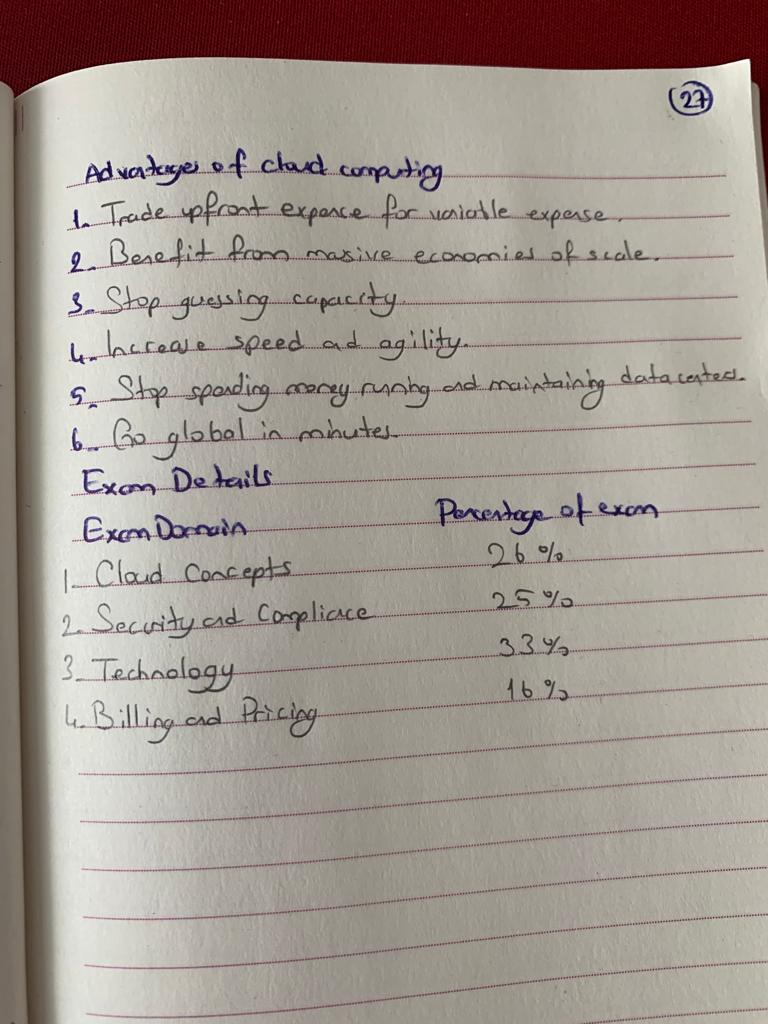 27
Advantages of cloud computing
1. Trade upfront expence for variable expense.
2. Benefit from masive economies of scale.
3. Stop guessing capacity.
4. Increase speed and agility.
5. Stop spending money running and maintaining data centers.
6. Go global in minutes.
Exam Details
Exam Domain Percentage of exam
1. Cloud Concepts 26%
2. Security and Compliance 25%
3. Technology 33%
4. Billing and Pricing 16%